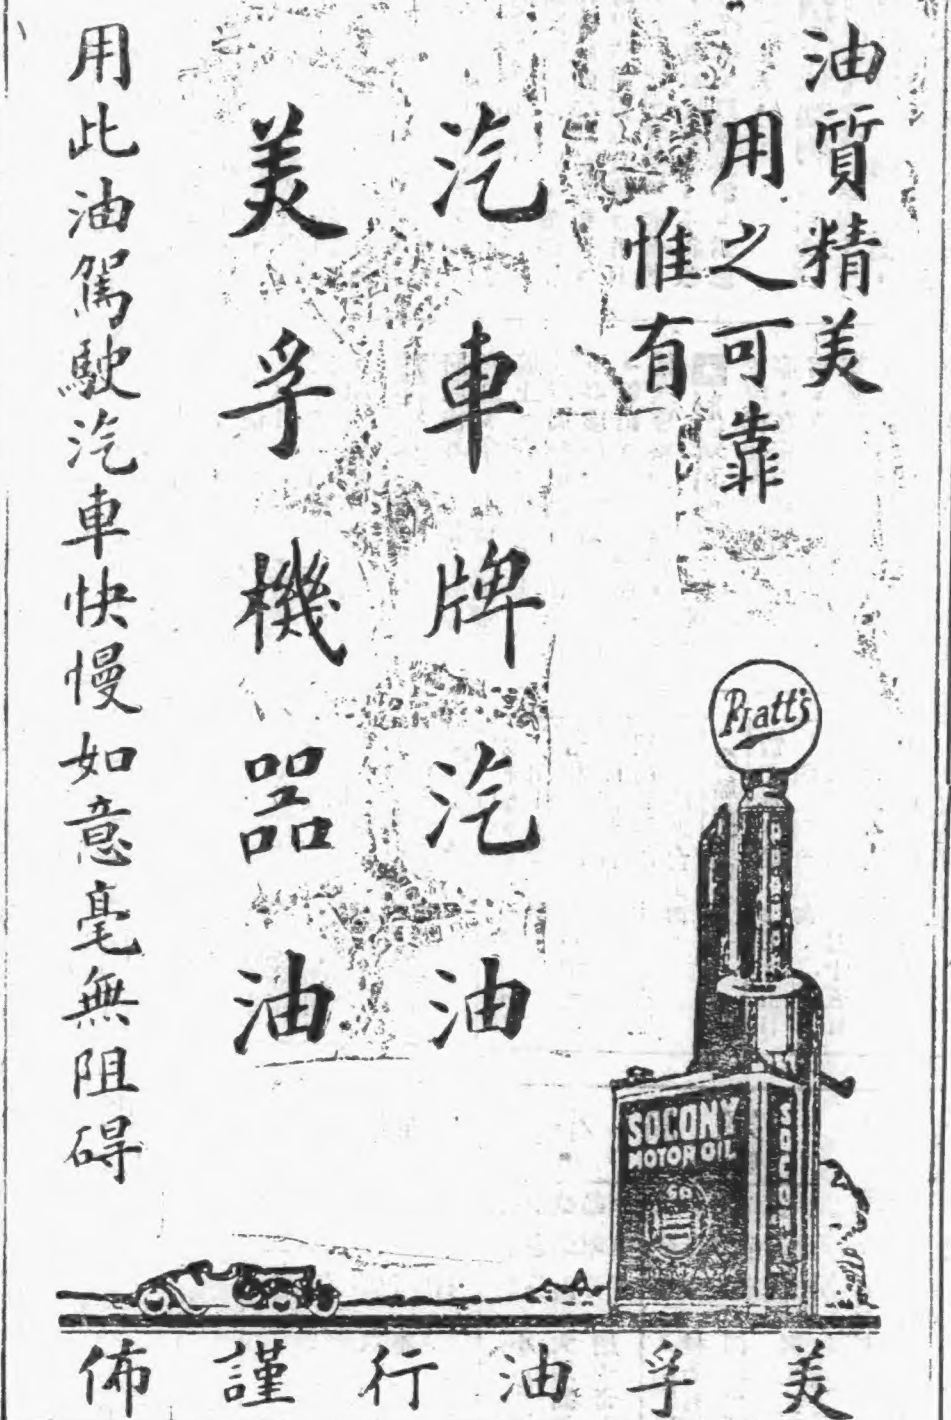 油質精美
用之可靠
惟有
汽車牌汽油
美孚機器油
用此油駕駛汽車快慢如意毫無阻碍
Pratt's
SOCONY
MOTOR OIL
SOCONY
美孚油行謹佈